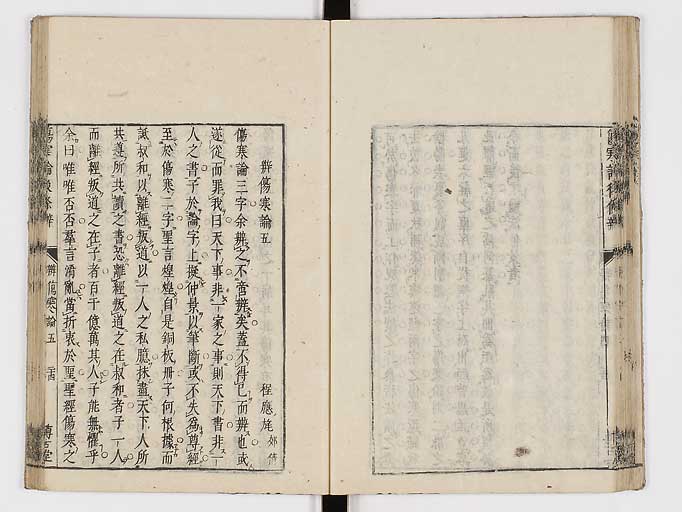 傷寒論後條辨
辨傷寒論五
程應旄郊倩
傷寒論三字余辨之不啻辨矣蓋不得已而辨也或
遂從而罪我曰天下事非一家之事則天下書非一
人之書子於論字上擬仲景以筆斷或不失為尊經
至於傷寒二字聖言煌煌自是銅板冊子何根據而
詆叔和以離經叛道以一人之私臆抹盡天下人所
共遵所共讀之書恐離經叛道之在叔和者子一人
而離經叛道之在子者百千億萬其人子能無懼乎
余曰唯唯否否羣言淆亂當折衷於聖聖經傷寒之
傷寒論後條辨
辨傷寒論五